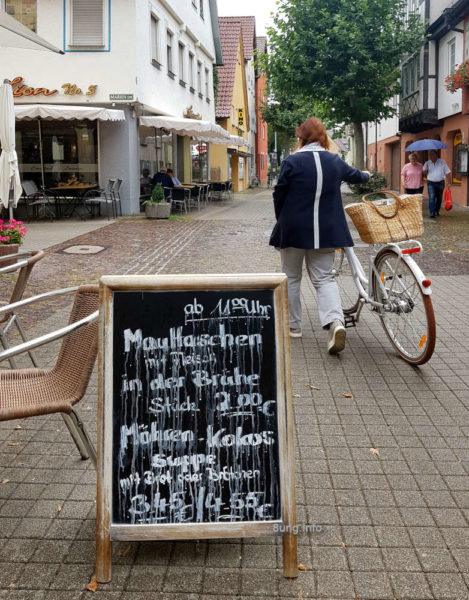 No. 5
ab 11.00 Uhr
Maultaschen
mit Fleisch
in der Brühe
Stück 2.00 €
Möhren-Kokos
suppe
mit Brot oder Brötchen
3.45 / 4.55
8ung.info